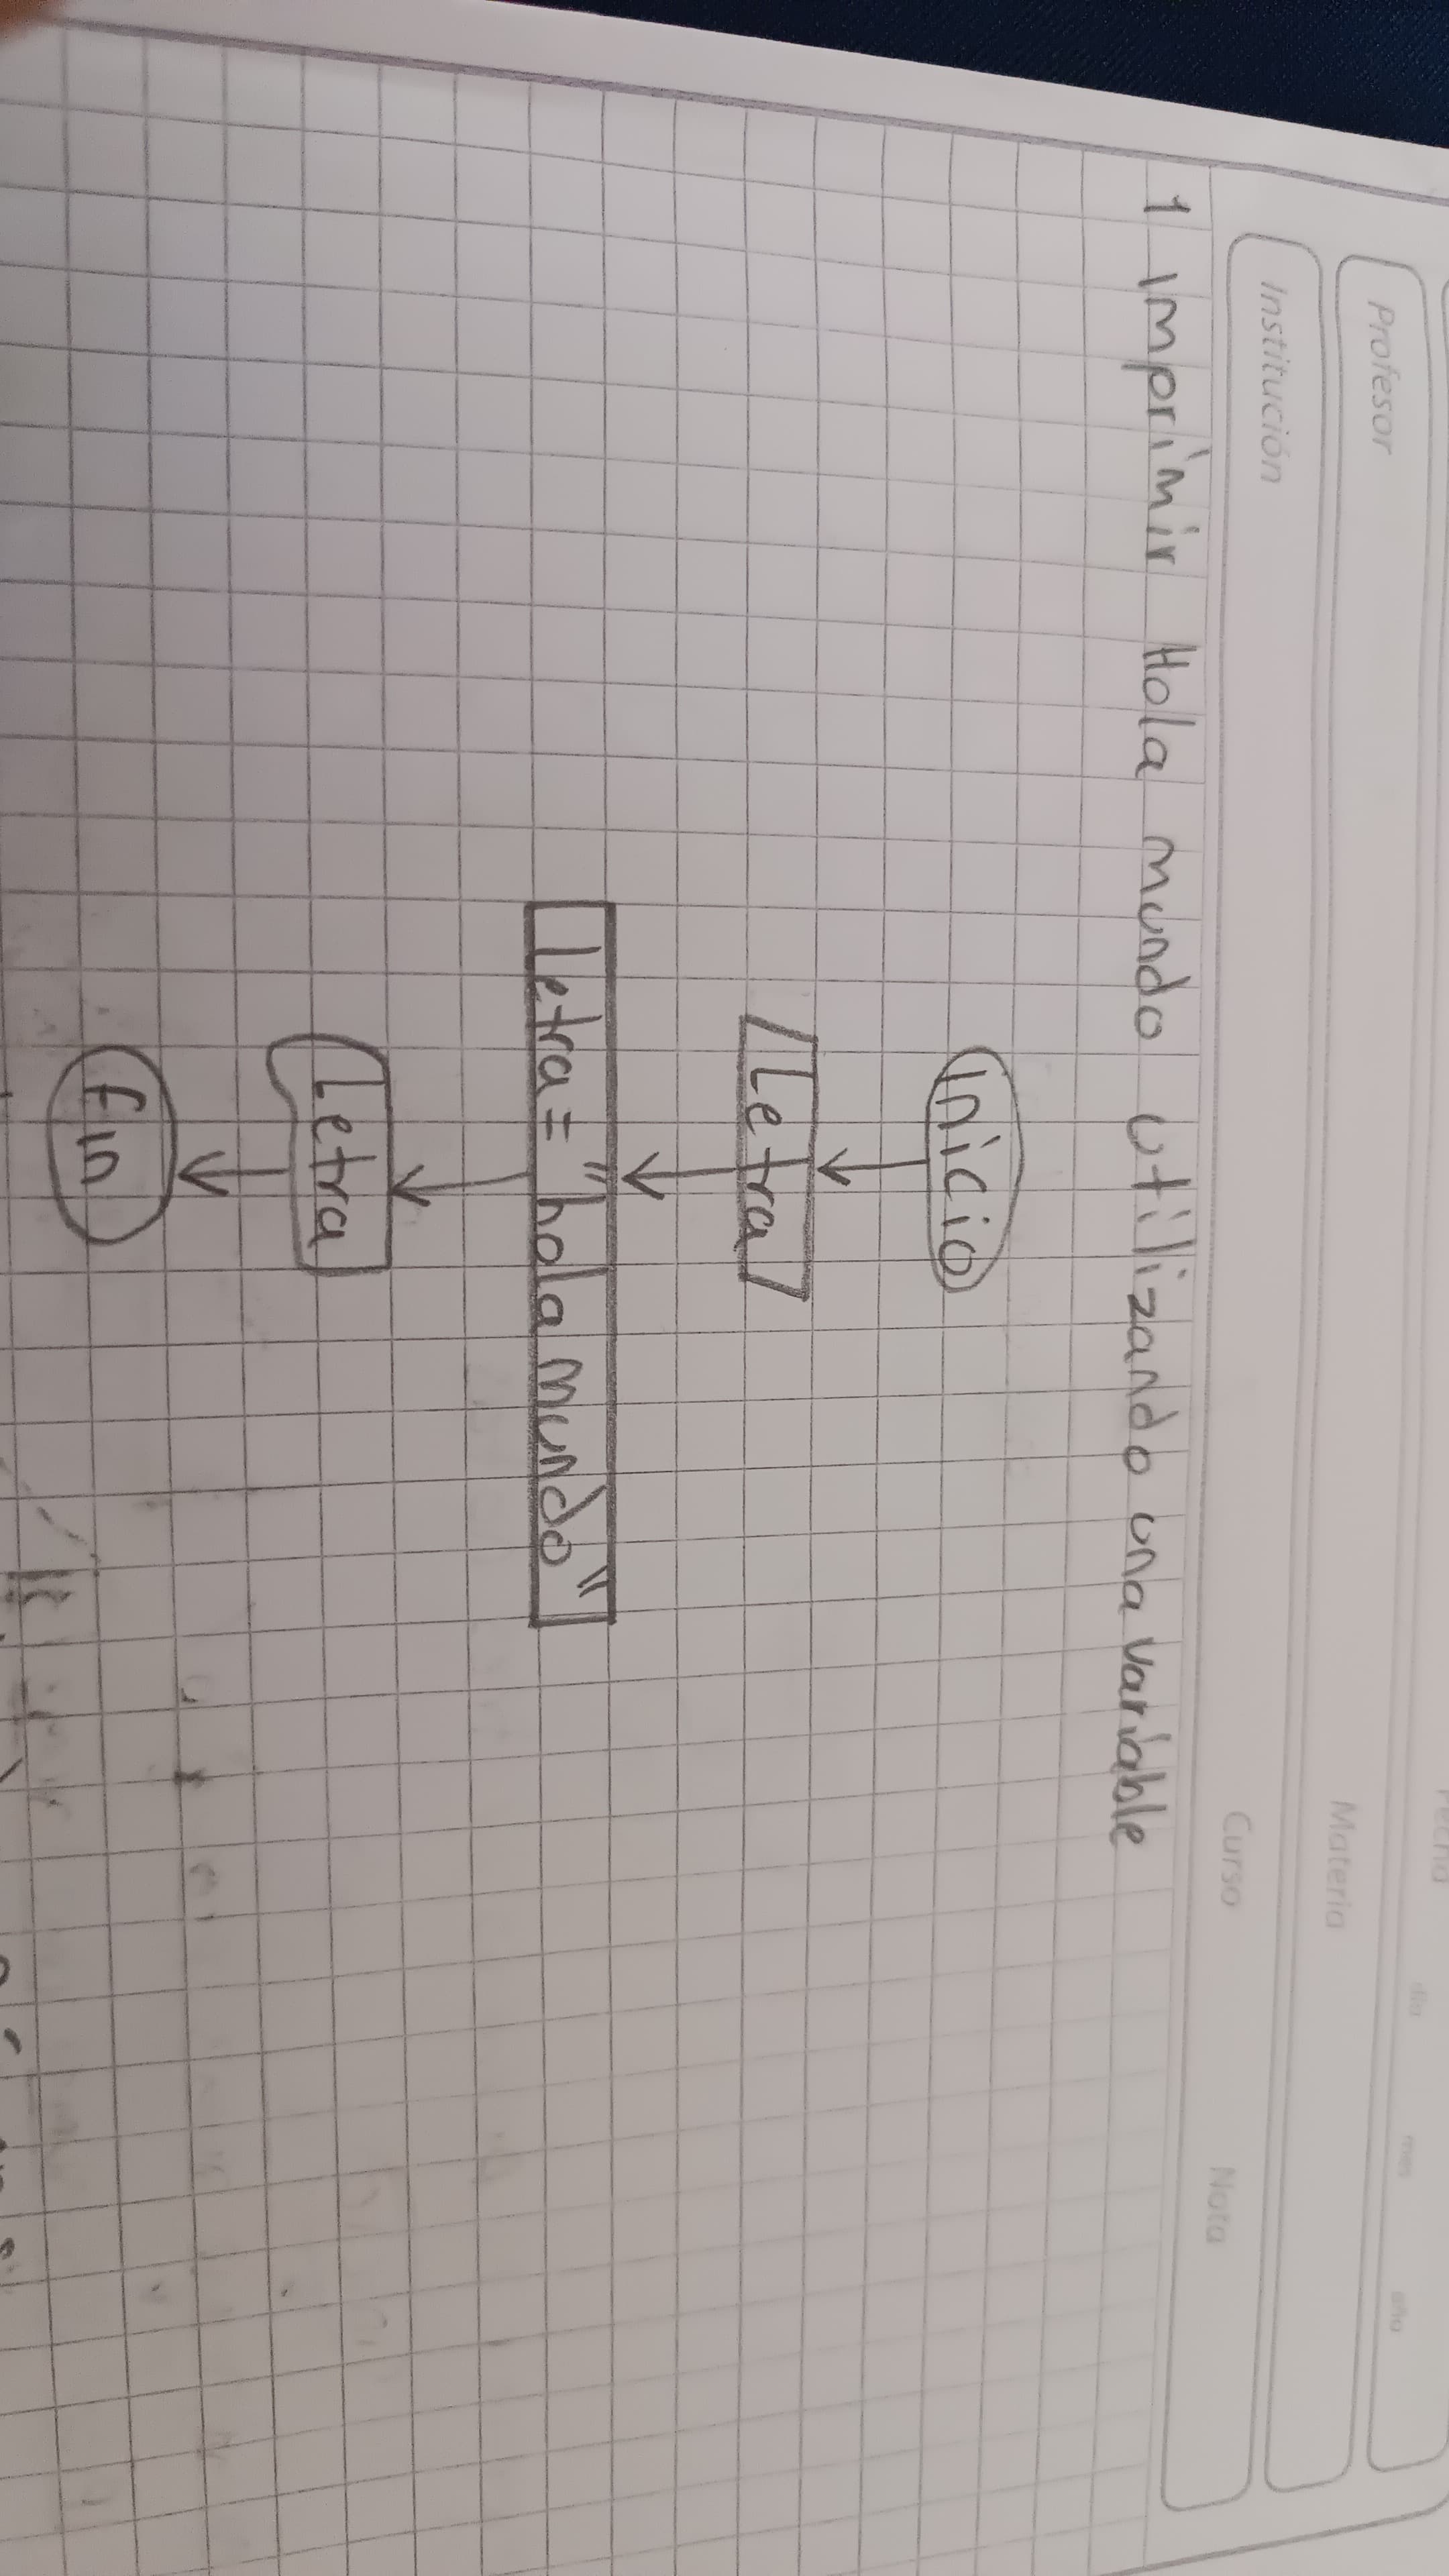 Fecha
día mes año
Profesor Materia
Institución Curso Nota
1 Imprimir Hola mundo utilizando una variable
Inicio
Letra
letra = "hola mundo"
Letra
fin